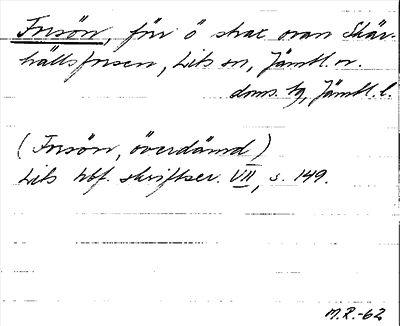 Forsön, för ö strax ovan Skär-
hällsforsen, Lits sn, Jämtl. n.
doms. tg, Jämtl. l.
(Forsön, överdämd)
Lits hbf. skriftser. VII, s. 149.
M.R.-62